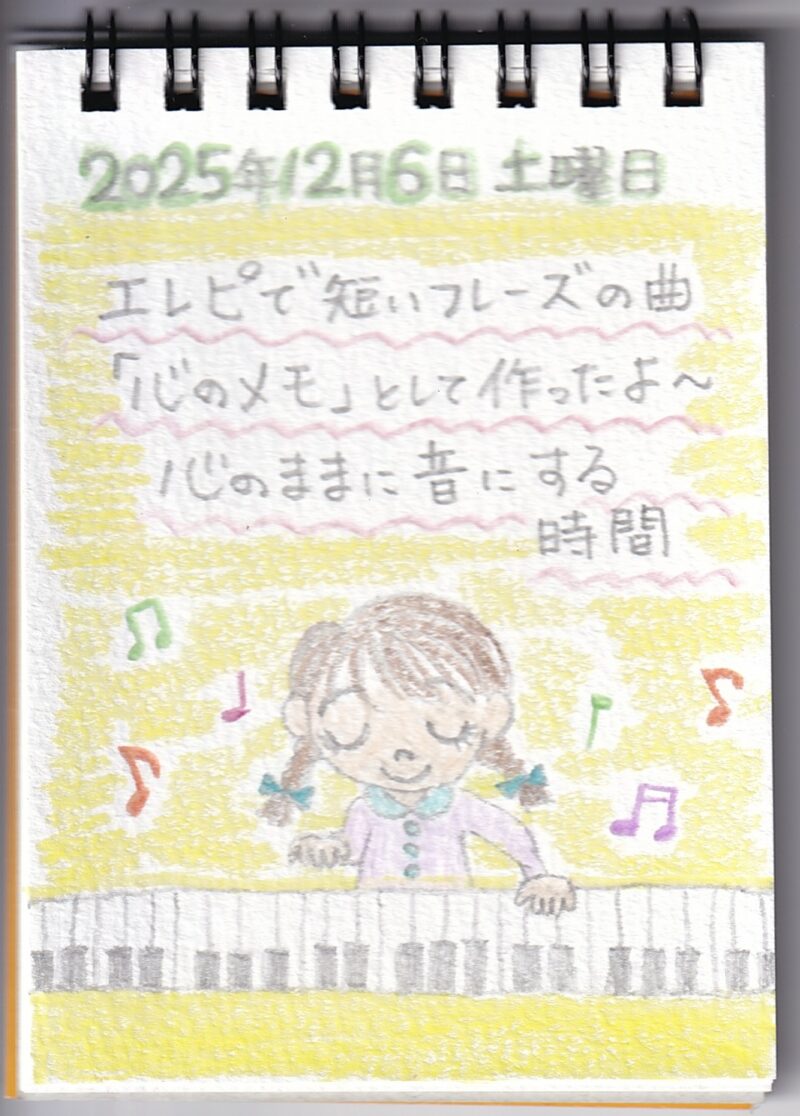 2025年12月6日 土曜日
エレピで短いフレーズの曲
「心のメモ」として作ったよ～
心のままに音にする
時間